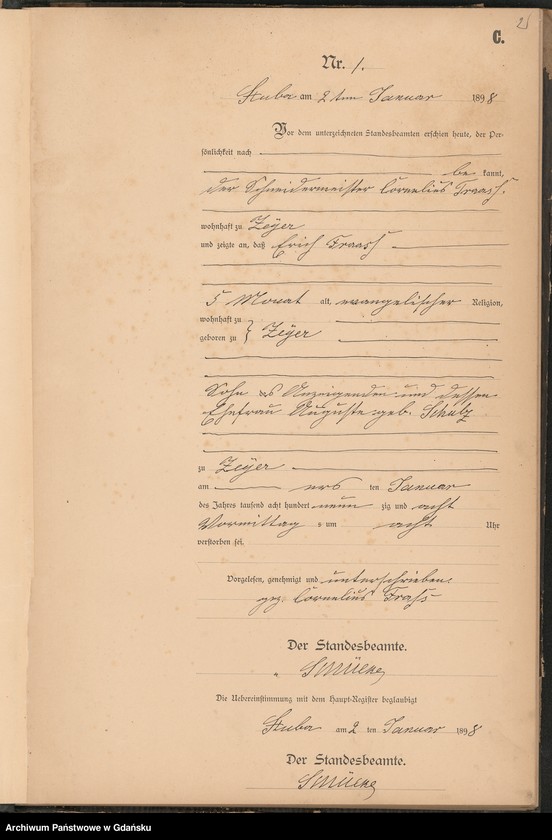 2
C.
Nr. 1.
Stuba am 2ten Januar 1898
Vor dem unterzeichneten Standesbeamten erschien heute, der Per-
sönlichkeit nach
be kannt,
der Schneidermeister Cornelius Fraass.
wohnhaft zu Zeÿer
und zeigte an, daß Erich Fraass
5 Monat alt, evangelischer Religion,
wohnhaft zu
geboren zu } Zeÿer
Sohn des Anzeigenden und dessen
Ehefrau Auguste geb. Schulz
zu Zeÿer
am ers ten Januar
des Jahres tausend acht hundert neun zig und acht
Vormittag s um acht Uhr
verstorben sei.
Vorgelesen, genehmigt und unterschrieben.
gez. Cornelius Frass
Der Standesbeamte.
Die Uebereinstimmung mit dem Haupt-Register beglaubigt
Stuba am 2 ten Januar 1898
Der Standesbeamte.
Archiwum Państwowe w Gdańsku